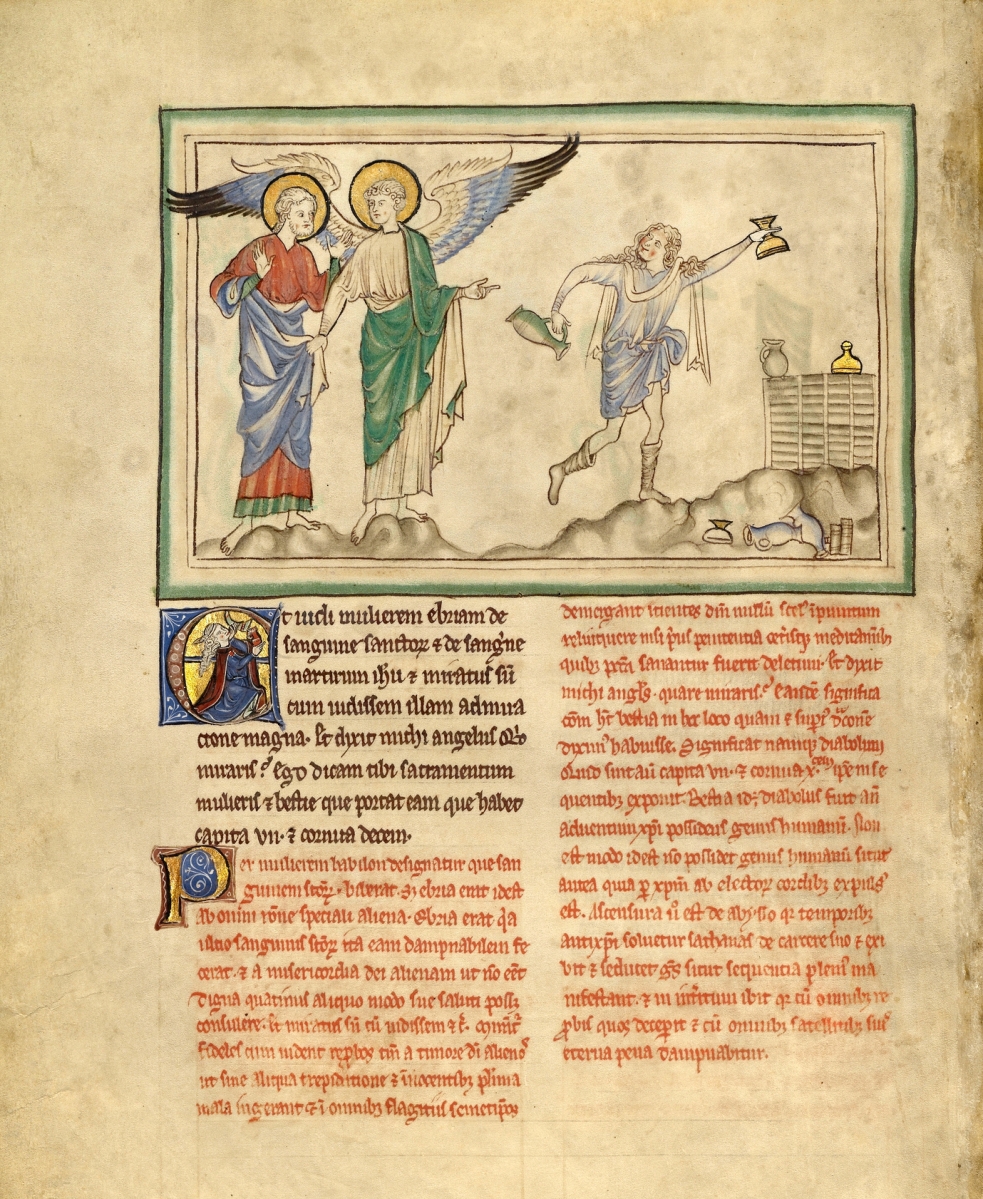 Et uidi mulierem ebriam de
sanguine sanctoꝝ ⁊ de sang͛ne
martirum ihu ⁊ miratus sū
cum uidissem illam admira
cione magna. Et dixit michi angelus Qr̄
miraris? Ego dicam tibi sacramentum
mulieris ⁊ bestie que portat eam que habet
capita vii. ⁊ cornua decem.
Per mulierem babilon designatur que san
guinem sc̄oꝝ biberat. Sꝫ ebria erat idest
ab omni rōne speciali aliena. Ebria erat q̇a
sanguinis sc̄oꝝ ita eam dampnabilem fe
cerat. ⁊ a misericordia dei alienam ut nō eēt
digna quatinus aliquo modo sue saluti possꝫ
consulere. Et miratus sū cū uidissem ⁊c̄.
fideles cum uident rep̄bos tm̄ a timore dī alienos
ut sine aliqua trepidatione ⁊ īnocentibꝫ pl̄ima
mala ingerant ⁊ ī omnibꝫ flagitiis semetip̄os
demergant nullū scel̕ īpunitum
relinquere nisi p̄us penitentia
quibꝫ sanantur fuerit deletum. Et dixit
michi angl̕s. quare miraris? Eandē significa
cōm hꝫ bestia in hoc loco quam ⁊ sup̄ dͣconē
diximꝰ habuisse. Significat namqꝫ diabolum
Quid sint aū capita vii. ⁊ cornua x. ip̄e in se
quentibꝫ exponit. Bestia id; diabolus fuit an̄
aduentum xp̄i possidens genus humanū. Non
est modo idest nō possidet genus humanū sicut
antea quia ꝑ xp̄m ab electoꝝ cordibꝫ expulsꝰ
est. Ascensura ū est de abysso qr temporibꝫ
antixp̄i soluetur sathanas de carcere suo ⁊ exi
bit ⁊ seducet gn̄s sicut sequentia pleniꝰ ma
nifestant. ⁊ in int̄itum ibit qr cū omnibꝫ re
ꝓbis quos deceperit ⁊ cū omnibꝫ satellitibꝫ suis
eterna pena dampnabitur.